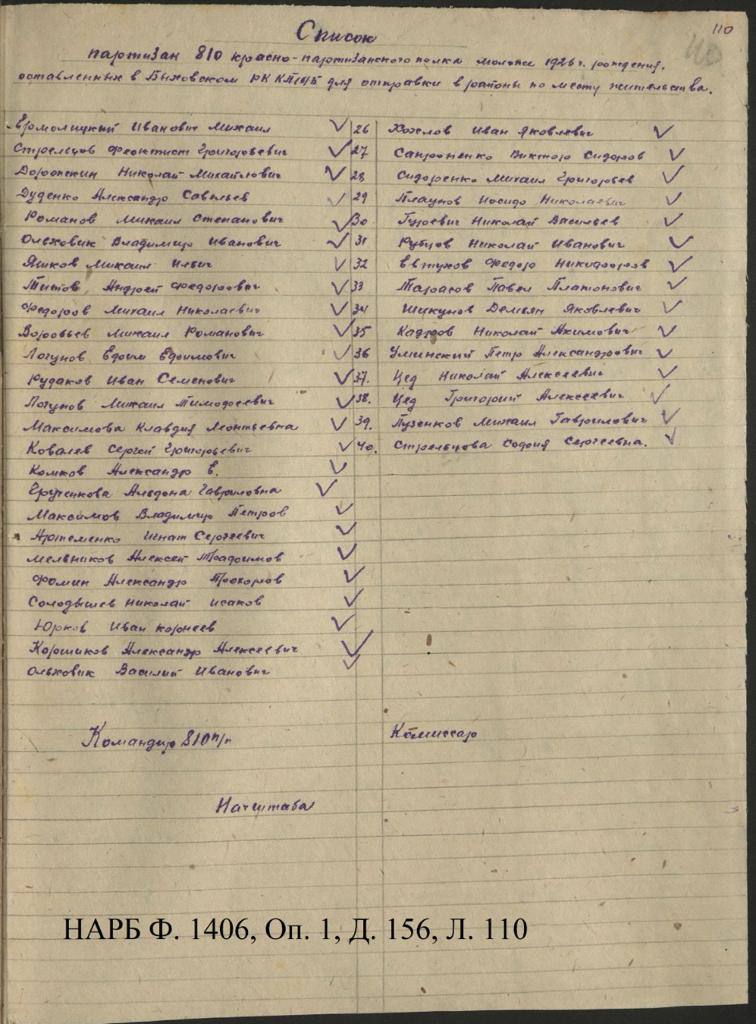 110
Список
партизан 810 красно-партизанского полка моложе 1926 г. рождения,
оставленных в Быховском РК КП(б)Б для отправки в районы по месту жительства.
Ермолицкий Иванович Михаил
Стрельцов Феоктист Григорьевич
Доронькин Николай Михайлович
Дуденко Александр Савельев
Романов Михаил Степанович
Ольховик Владимир Иванович
Яшков Михаил Ильич
Титов Андрей Федорович
Федоров Михаил Николаевич
Воробьев Михаил Романович
Логунов Ефим Ефимович
Рудаков Иван Семенович
Логунов Михаил Тимофеевич
Максимова Клавдия Леонтьевна
Ковалев Сергей Григорьевич
Комков Александр Е.
Альдона Гавриловна
Максимов Владимир Петров
Артеменко Игнат Сергеевич
Мельников Алексей Трофимов
Фомин Александр Прохоров
Солодышев Николай Исаков
Юрков Иван Корнеев
Коршиков Александр Алексеевич
Ольховик Василий Иванович
26 Козлов Иван Яковлевич
27 Сапроненко Виктор Сидоров
28 Сидоренко Михаил Григорьев
29 Плаунов Иосиф Николаевич
30 Гуревич Николай Васильев
31 Рубцов Николай Иванович
32 Евтухов Федор Никифоров
33 Тарасов Павел Платонович
34 Шукунов Демьян Яковлевич
35 Николай Акимович
36 Улинский Петр Александрович
37. Цед Николай Алексеевич
38. Цед Григорий Алексеевич
39. Пузенков Михаил Гаврилович
40. Стрельцова София Сергеевна.
Командир 810 п/п
Комиссар
Начштаба
НАРБ Ф. 1406, Оп. 1, Д. 156, Л. 110